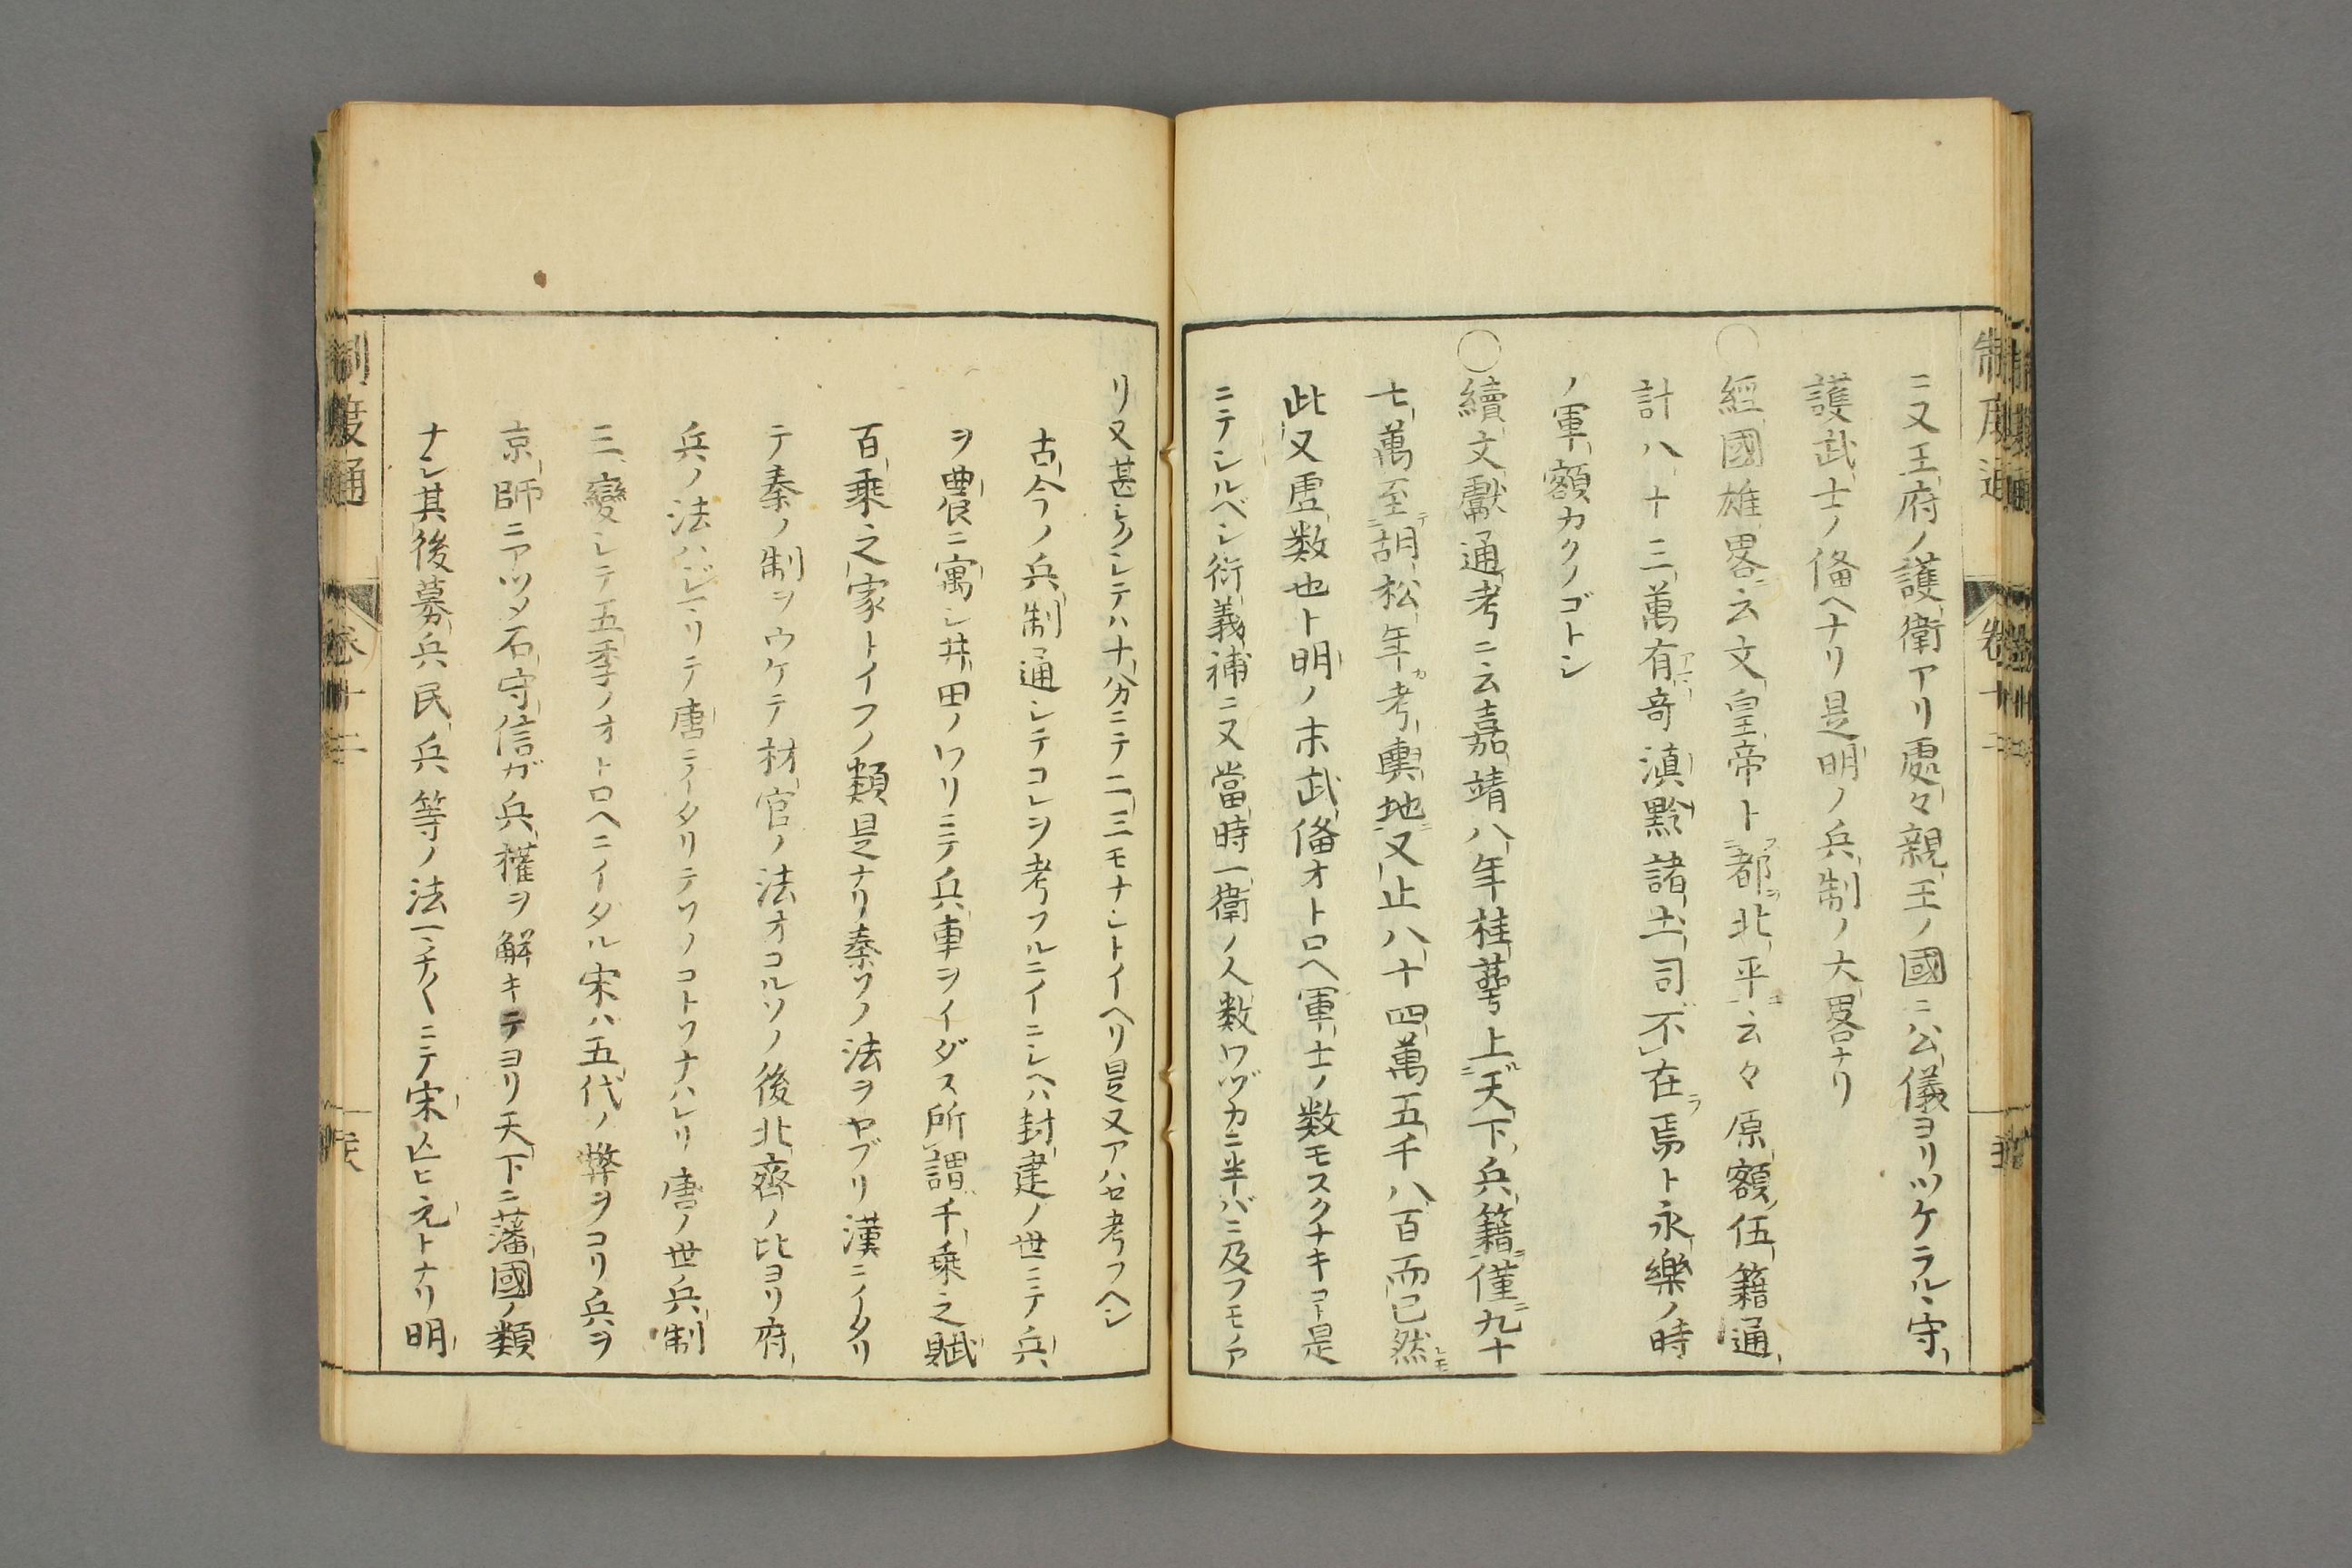 ニ又王府ノ護衛アリ處々親王ノ國ニ公儀ヨリツケラル丶守
護武士ノ備ヘナリ是明ノ兵制ノ大畧ナリ
○經國雄畧云文皇帝ト都北平云々原額伍籍通
計八十三萬有奇滇黔諸土司不在焉ト永樂ノ時
ノ軍額カクノゴトシ
○續文獻通考ニ云嘉靖八年桂蕚上天下兵籍僅九十
七萬至胡松年考輿地又止八十四萬五千八百而已然
此又虚数也ト明ノ末武備オトロヘ軍士ノ数モスクナキコト是
ニテシルベシ衍義補ニ又當時一衛ノ人数ワヅカニ半バニ及フモノア
リ又甚シクシテハ十分ニテ二三モナシトイヘリ是又アハセ考フヘシ
古今ノ兵制通シテコレヲ考フルニイニシヘハ封建ノ世ニテ兵
ヲ農ニ寓シ井田ノワリニテ兵車ヲイダス所謂千乗之賦
百乘之家トイフノ類是ナリ秦ソノ法ヲヤブリ漢ニイタリ
テ秦ノ制ヲウケテ材官ノ法オコルソノ後北齊ノ比ヨリ府
兵ノ法ハジマリテ唐ニイタリテソノコトソナハレリ唐ノ世兵制
三變シテ五季ノオトロヘニイタル宋ハ五代ノ弊ヲコリ兵ヲ
京師ニアツメ石守信ガ兵權ヲ解キテヨリ天下ニ藩國ノ類
ナシ其後募兵民兵等ノ法マチ〱ニテ宋ノ亡ヒ元トナリ明
制度通
卷十二